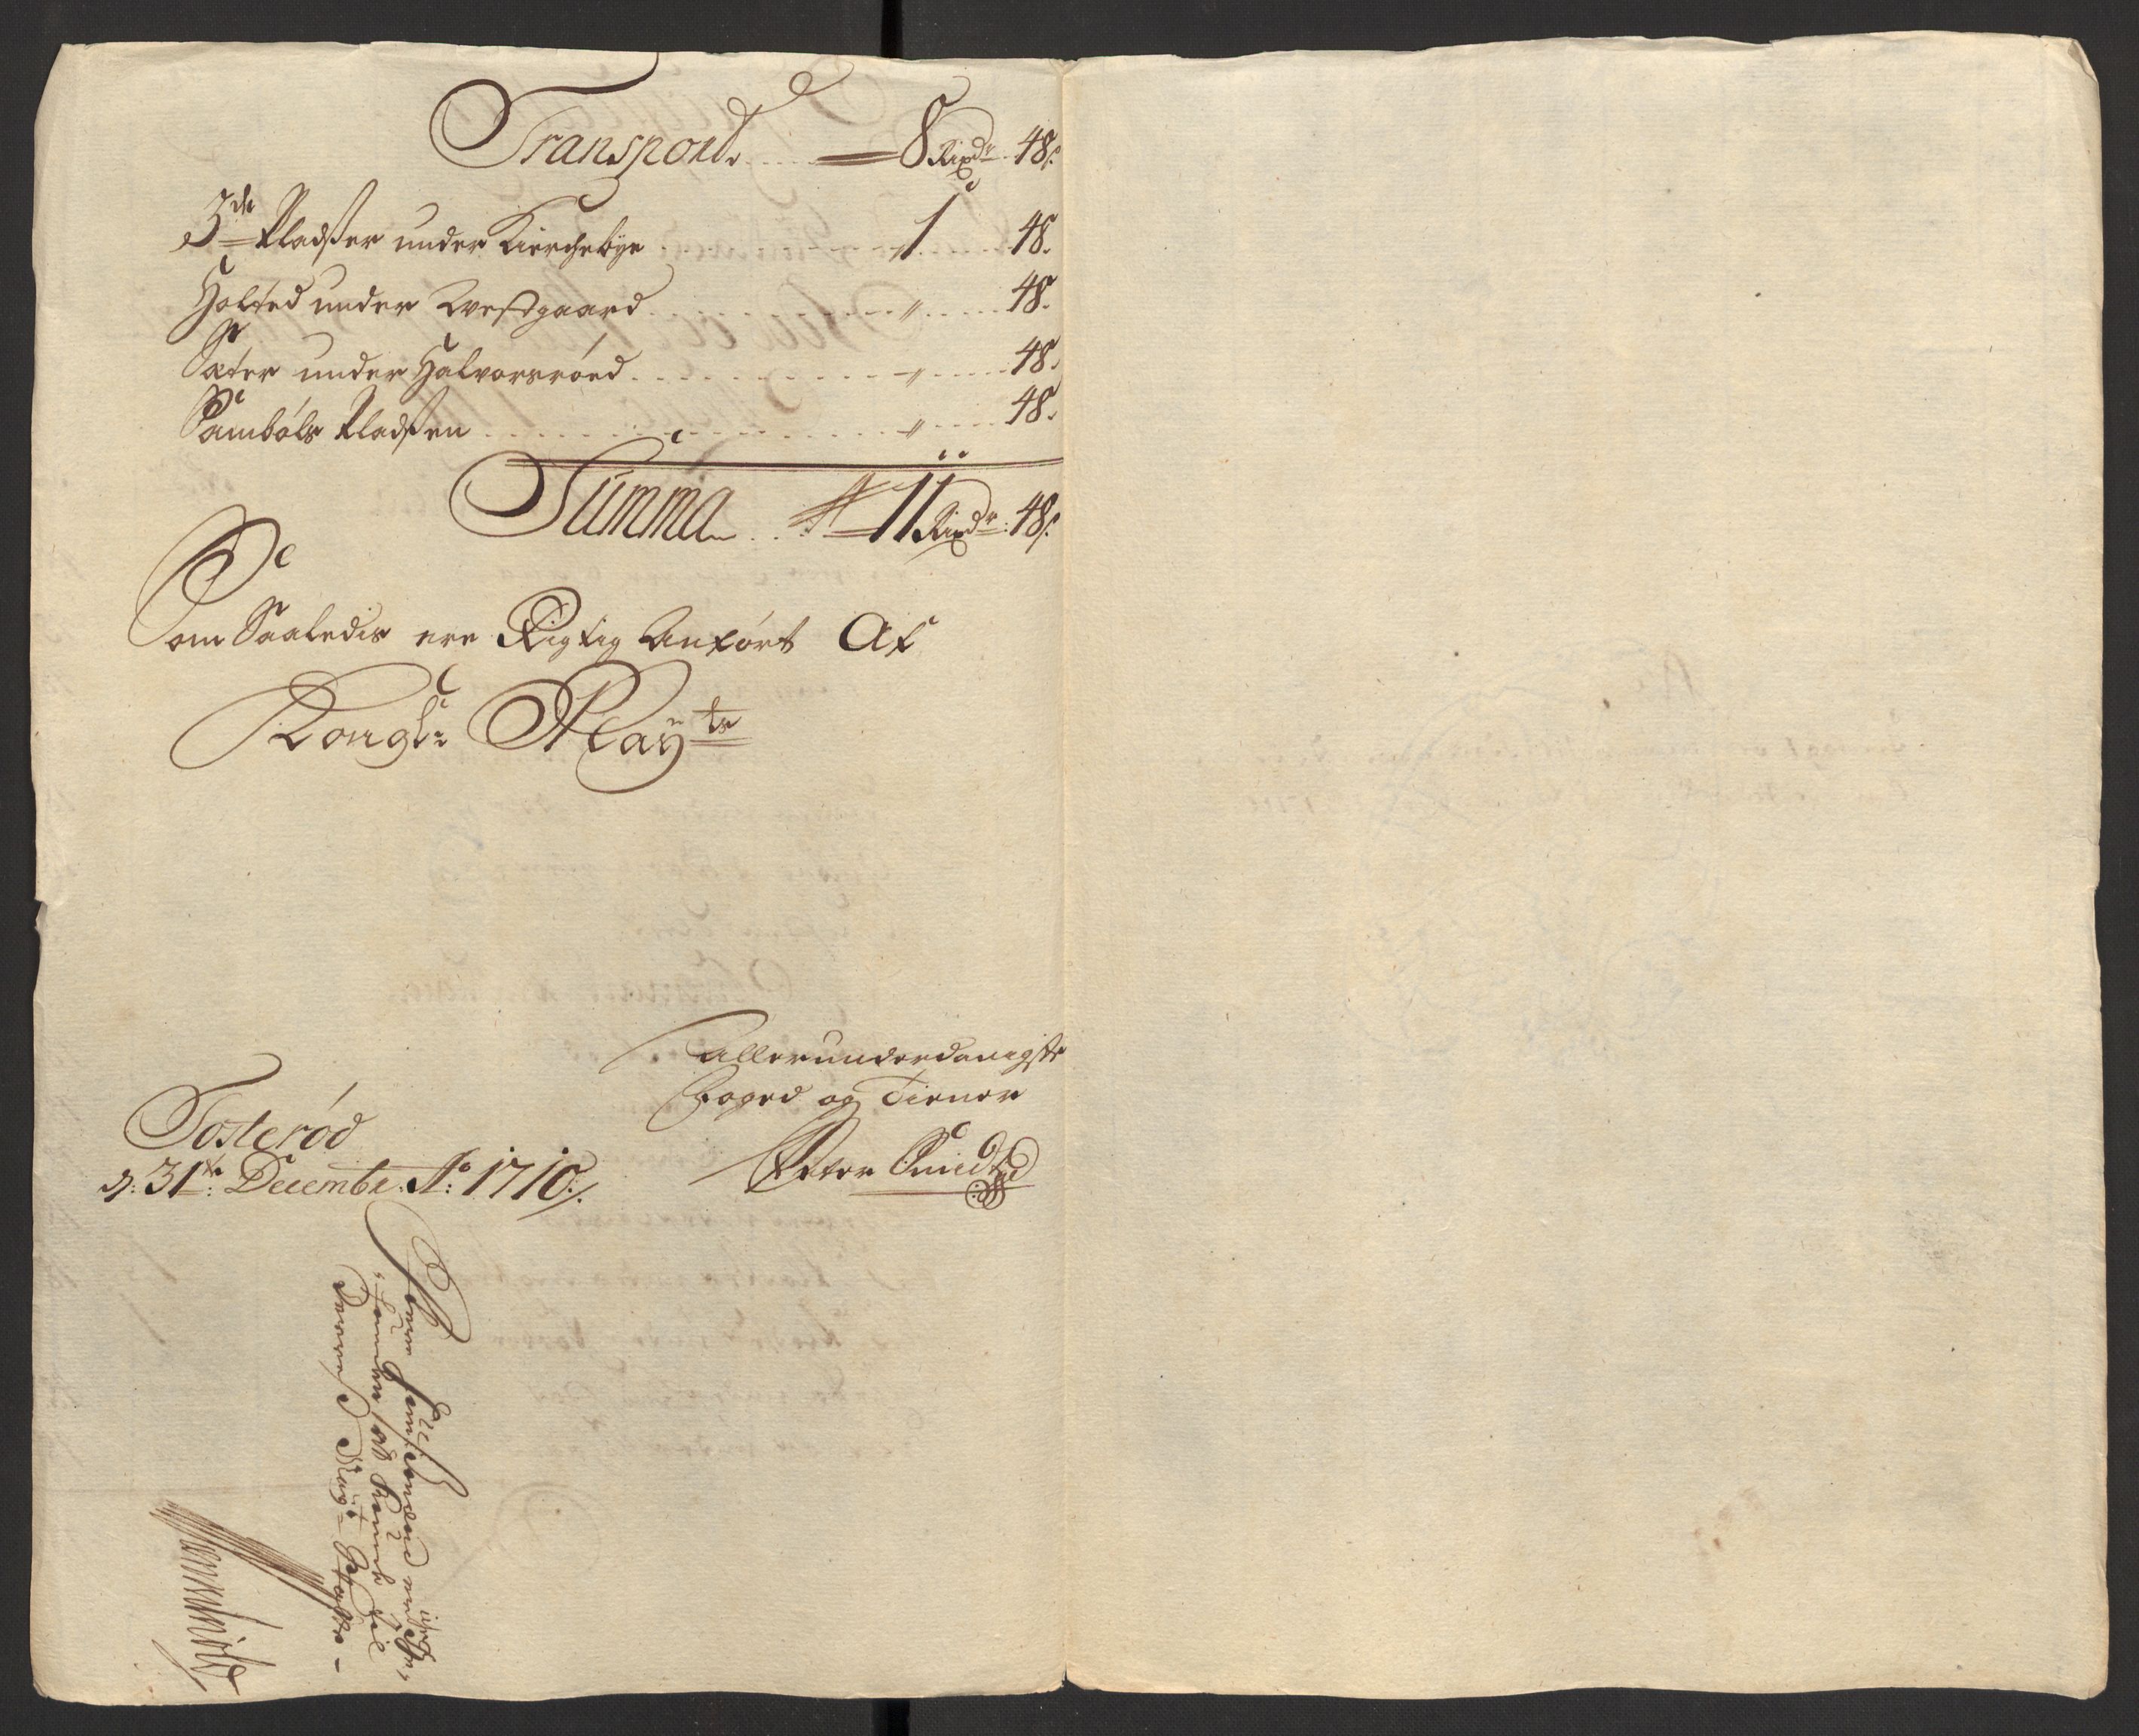 Transport. 8 Rixdr. 48 s.
3de Pladßer under Kierchebye 1 48.
Holsted under Westgaard " 48.
Sæter under Halvorsröed " 48.
Sambóls Pladßen " 48.
Summa 11 Rixdr: 48 s.
Som Saaledis ere Rigtig Anfört Af
Kongl: May:ts
Allerunderdanigste
Foged og Tiener
Peter Smidt
Tosteröd
d: 31te: Decembr: Ao: 1710.